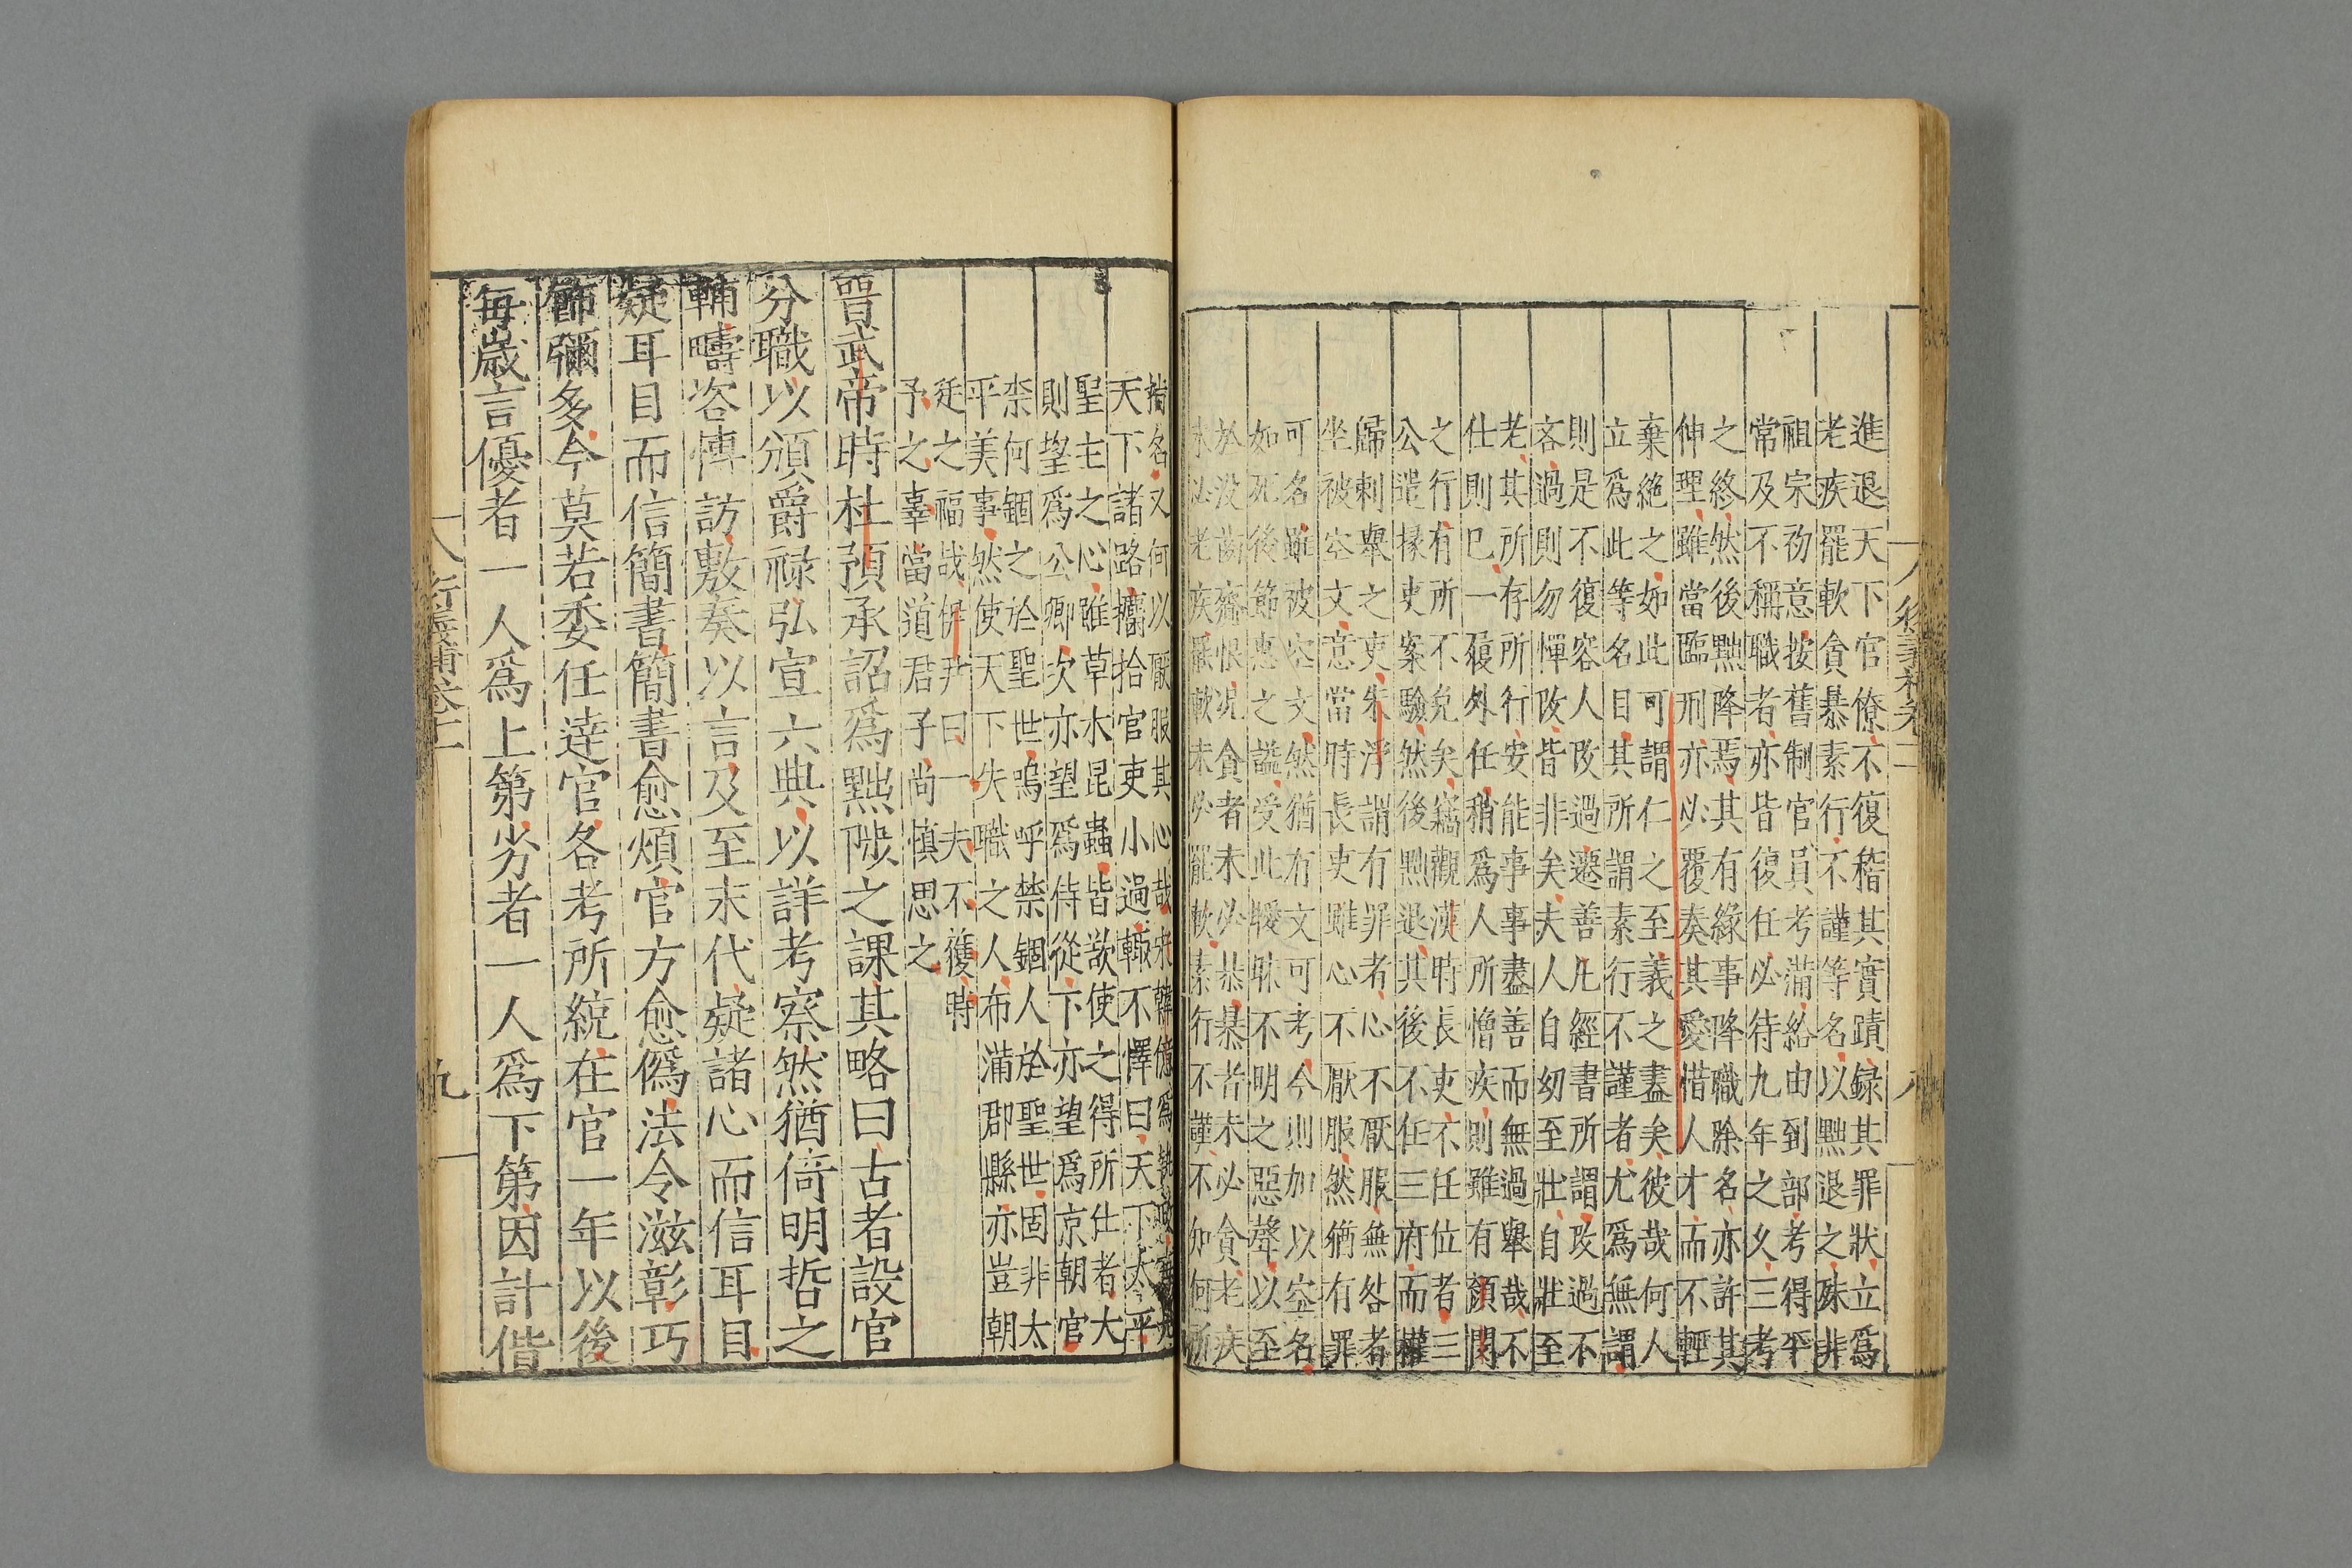 進退天下官僚不復稽其實蹟録其罪狀立爲
老疾罷軟貪暴素行不謹等名以黜退之殊非
祖宗初意按舊制官員考滿給由到部考得平
常及不稱職者亦皆復任必待九年之久三考
之終然後黜降焉其有緣事降職除名亦許其
伸理雖當臨刑亦必覆奏其愛惜人才而不輕
棄絶之如此可謂仁之至義之盡矣彼哉何人
立爲此等名目其所謂素行不謹者尤爲無謂
則是不復容人改過遷善凡經書所謂改過不
吝過則勿憚改皆非矣夫人自幼至壯自壯至
老其所存所行安能事事盡善而無過舉哉不
仕則已一履外任稍爲人所憎疾則雖有顏閔
之行有所不免矣竊觀漢時長吏不任位者三
公遣掾吏案驗然後黜退其後不任三府而權
歸刺舉之吏朱浮謂有罪者心不厭服無咎者
坐被空文意當時長吏雖心不厭服然猶有罪
可名雖被空文然猶有文可考今則加以空名
如死後節惠之謚受此曖昧不明之惡聲以至
於没齒齎恨况貪者未必暴暴者未必貪老疾
未必老疾罷軟未必罷軟素行不謹不知何所
指名又何以厭服其心哉宋韓億爲執政
天下諸路攟拾官吏小過輒不懌曰天下太平
聖主之心雖草木昆蟲皆欲使之得所仕者大
則望爲公卿次亦望爲侍從下亦望爲京朝官
柰何錮之於聖世嗚呼禁錮人於聖世固非太
平美事然使天下失職之人布滿郡縣亦豈朝
廷之福哉伊尹曰一夫不獲時
予之辜當道君子尚慎思之
晉武帝時杜預承詔爲黜陟之課其略曰古者設官
分職以頒爵禄弘宣六典以詳考察然猶倚明哲之
輔疇咨博訪敷奏以言及至末代疑諸心而信耳目
疑耳目而信簡書簡書愈煩官方愈僞法令滋彰巧
飾彌多今莫若委任逹官各考所統在官一年以後
每歳言優者一人爲上第劣者一人爲下第因計偕